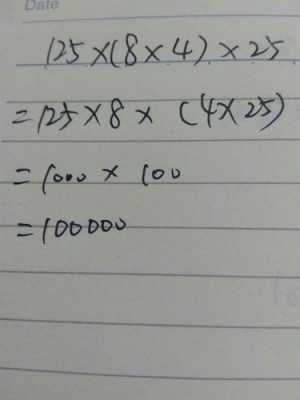 Date
125×(8×4)×25
=125×8×(4×25)
=1000×100
=100000